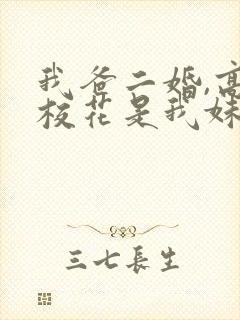 我爸二婚,高
校花是我妹
三七長生